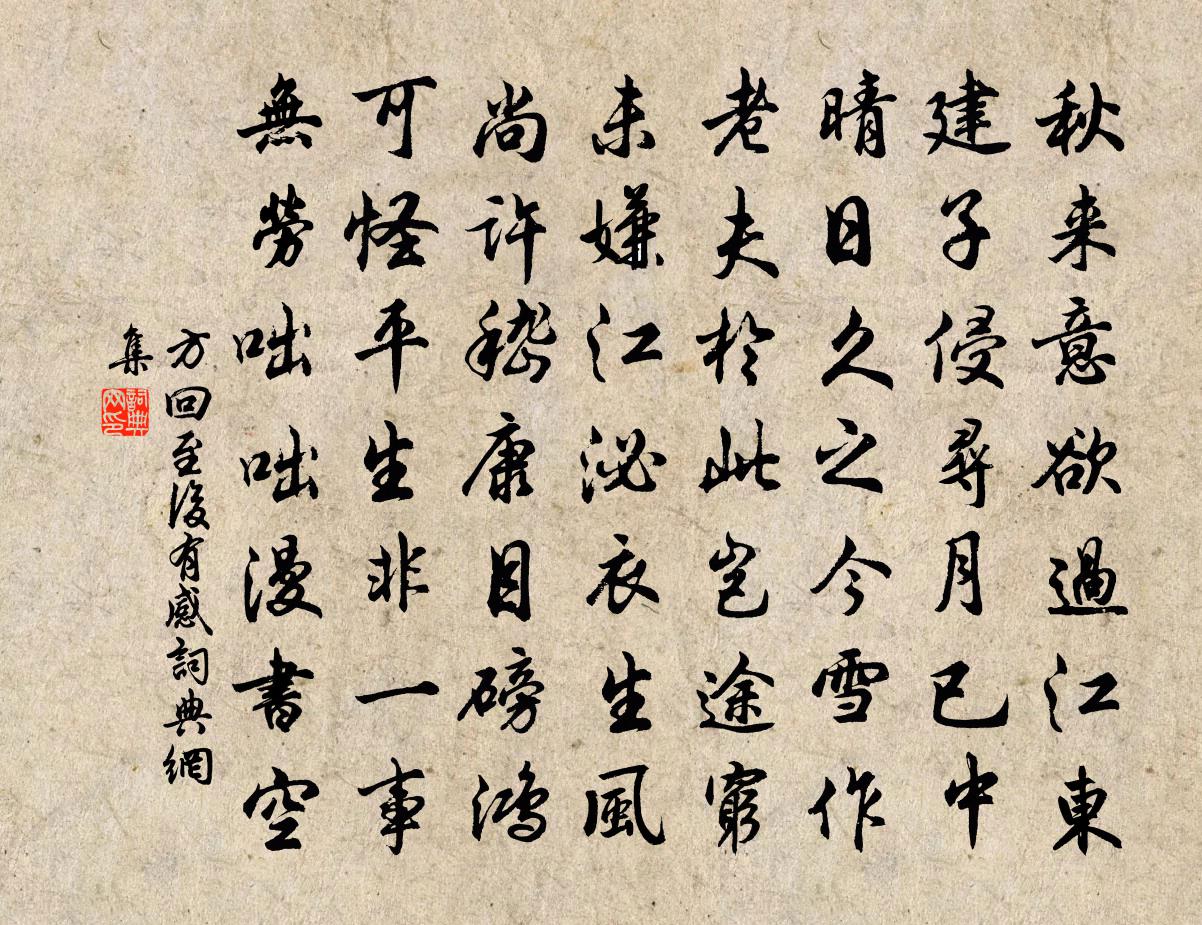 秋来意欲過江東
建子侵尋月已中
晴日久之今雪作
老夫於此豈途窮
未嫌江泌衣生風
尚許嵇康目磅鴻
可怪平生非一事
無勞咄咄漫書空
方回至後有感詞典網
集
詞典
网印